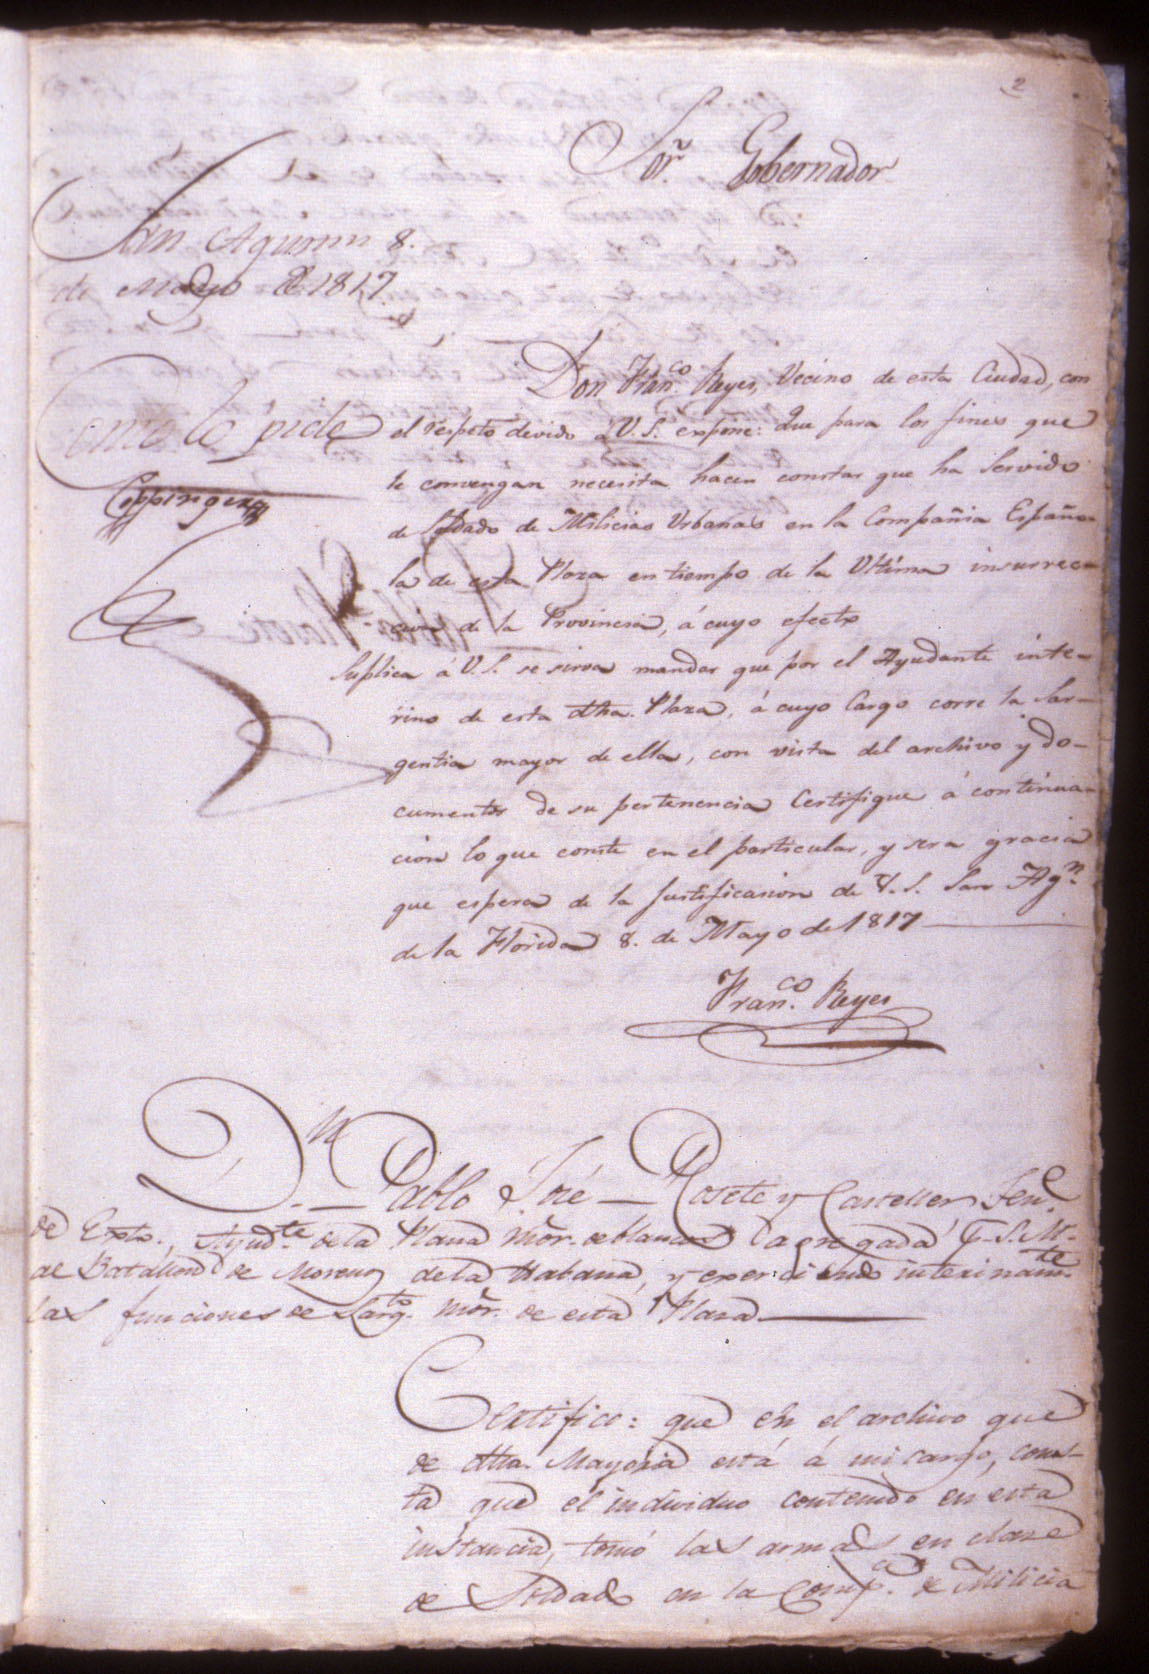 2
Sor. Gobernador
San Agustin 8.
de Mayo de 1817
Como lo pide
Coppinger
Don Franco. Reyes, Vecino de esta Ciudad, con
el respeto devido á V. S. expone: Que para los fines que
le convengan necesita hacer constar que ha Servido
de Soldado de Milicias Urbanas en la Compañia Españo-
la de esta Plaza en tiempo de la Ultima insurrec-
cion de la Provincia, á cuyo efecto
Suplica á V. S. se sirva mandar que por el Ayudante inte-
rino de esta dha. Plaza, á cuyo Cargo corre la Sar-
gentia mayor de ella, con vista del archivo y do-
cumentos de su pertenencia Certifique á continua-
cion lo que conste en el particular, y sera gracia
que espera de la Justificacion de V. S. San Agn.
de la Florida 8. de Mayo de 1817
Franco. Reyes
Dn. Pablo José Rosete y Casteller Tene.
de Exto., Ayudte. de la Plana Mor. de blancos agregada p. S. M.
al Batallon de Morenos de la Habana, y exerciendo interinamte.
las funciones de Sargto. Mor. de esta Plaza
Certifico: que en el archivo que
de dha. Mayoria está á mi cargo, cons-
ta que el individuo contenido en esta
instancia, tomó las armas en clase
de Soldado en la Compa. de Milicia